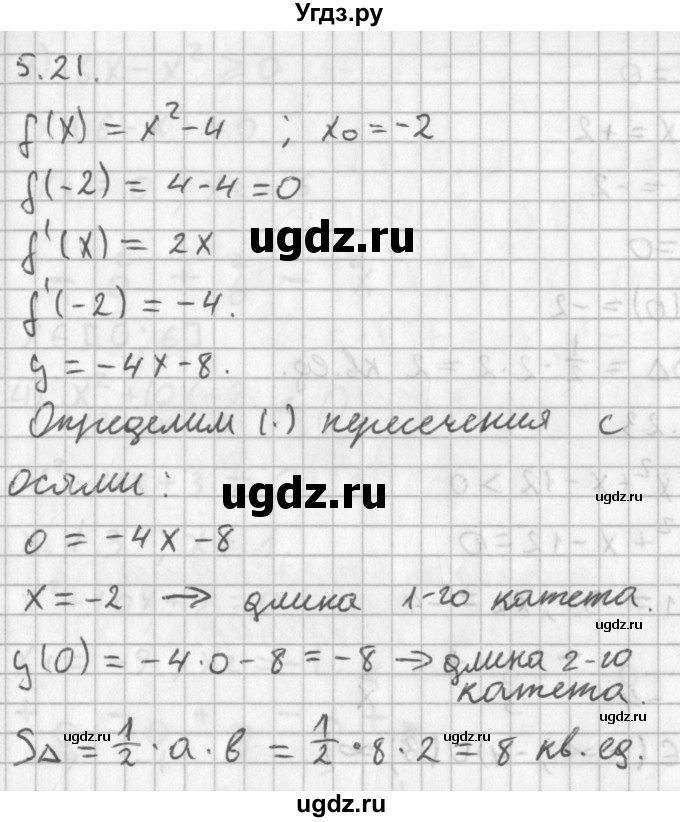 Угдз.ру
5.21.
f(x) = x² - 4 ; x₀ = -2
f(-2) = 4 - 4 = 0
f'(x) = 2x
ugdz.ru
f'(-2) = -4.
y = -4x - 8.
Определим (.) пересечения с
осями:
ugdz.ru
ugdz.ru
0 = -4x - 8
x = -2 → длина 1-го катета.
ugdz.ru
y(0) = -4·0 - 8 = -8 → длина 2-го
катета.
ugdz.ru
ugdz.ru
S△ = 1/2 · a · b = 1/2 · 8 · 2 = 8 кв. ед.
ugdz.ru
ugdz.ru